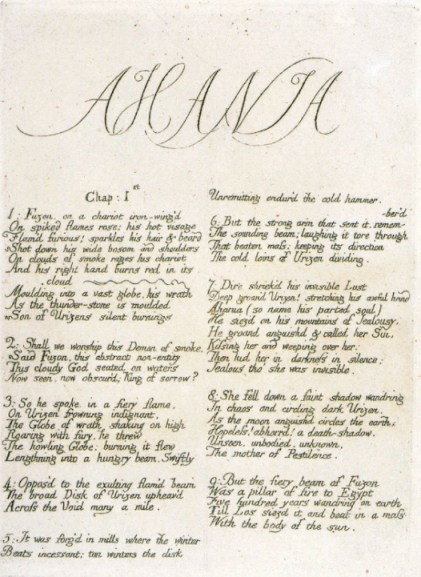 AHANIA
Chap: Ist
1: Fuzon, on a chariot iron-wing'd
On spiked flames rose; his hot visage
Flam'd furious! sparkles his hair & beard
Shot down his wide bosom and shoulders
On clouds of smoke rages his chariot
And his right hand burns red in its
cloud
Moulding into a vast globe, his wrath
As the thunder-stone is moulded.
Son of Urizens silent burnings
2: Shall we worship this Demon of smoke,
Said Fuzon, this abstract non-entity
This cloudy God seated on waters
Now seen, now obscur'd; King of sorrow?
3: So he spoke, in a fiery flame,
On Urizen frowning indignant,
The Globe of wrath shaking on high
Roaring with fury, he threw
The howling Globe: burning it flew
Lengthning into a hungry beam. Swiftly
4: Oppos'd to the exulting flam'd beam
The broad Disk of Urizen upheav'd
Across the Void many a mile.
5: It was forg'd in mills where the winter
Beats incessant; ten winters the disk
Unremitting endur'd the cold hammer.
6: But the strong arm that sent it, remem-
-ber'd
The sounding beam; laughing it tore through
That beaten mass: keeping its direction
The cold loins of Urizen dividing.
7: Dire shriek'd his invisible Lust
Deep groan'd Urizen! stretching his awful hand
Ahania (so name his parted soul)
He siez'd on his mountains of Jealousy.
He groand anguishd & called her Sin,
Kissing her and weeping over her;
Then hid her in darkness in silence;
Jealous tho' she was invisible.
8: She fell down a faint shadow wandring
In chaos and circling dark Urizen,
As the moon anguishd circles the earth;
Hopeless! abhorrd! a death-shadow,
Unseen, unbodied, unknown,
The mother of Pestilence.
9: But the fiery beam of Fuzon
Was a pillar of fire to Egypt
Five hundred years wandring on earth
Till Los siezd it and beat in a mass
With the body of the sun.